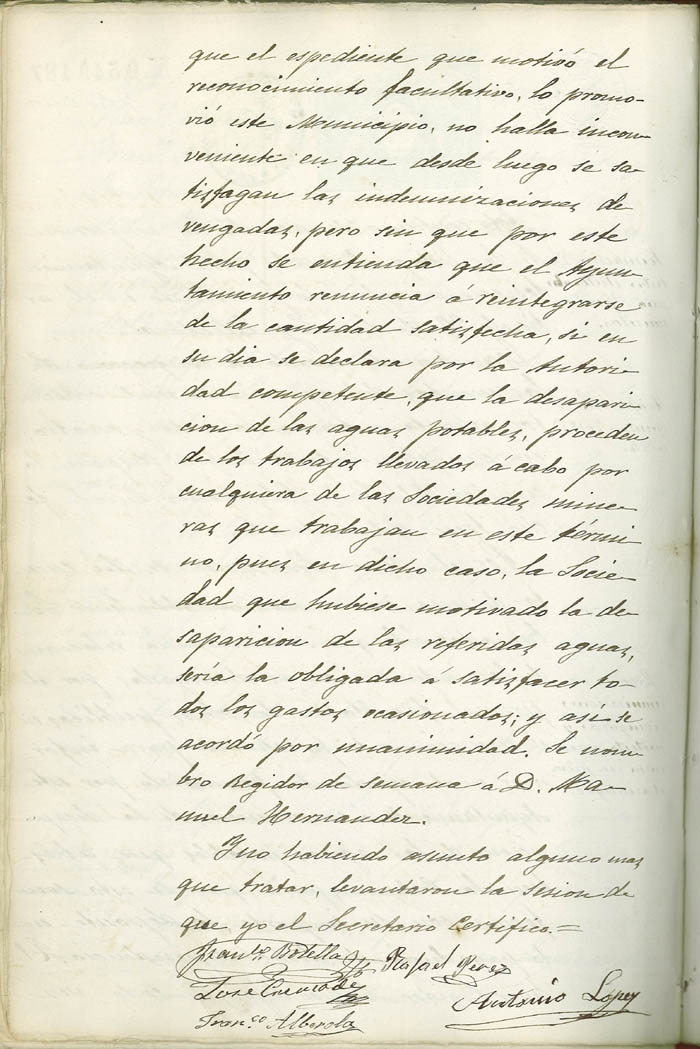 que el espediente que motivó el
reconocimiento facultativo, lo promo-
vió este Municipio, no halla incon-
veniente en que desde luego se sa-
tisfagan las indemnizaciones de
vengadas, pero sin que por este
hecho se entienda que el Ayun-
tamiento renuncia á reintegrarse
de la cantidad satisfecha, si en
su dia se declara por la Autori-
dad competente, que la desapari-
cion de las aguas potables, proceden
de los trabajos llevados á cabo por
cualquiera de las Sociedades mine-
ras que trabajan en este térmi
no, pues en dicho caso, la Socie-
dad que hubiese motivado la de-
saparicion de las referidas aguas,
sería la obligada á satisfacer to-
dos los gastos ocasionados; y asi se
acordó por unanimidad. Se nom-
bro Regidor de semana á D. Ma-
nuel Hernandez.
Y no habiendo asunto alguno mas
que tratar, levantaron la sesion de
que yo el Secretario Certifico.=
Franco. Botella Rafael Perez
José
Antonio Lopez
Franco. Alberola